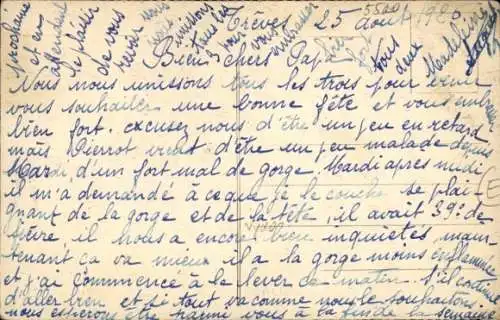 Trèves, 25 août 1920.
Bien chers Papa
Nous nous unissons tous les trois pour venir
vous souhaiter une bonne fête et vous
bien fort. excusez nous d'être un peu en retard
mais Pierrot vient d'être un peu malade depuis
Mardi, d'un fort mal de gorge. Mardi après midi
il m'a demandé à ce que je le couche se plai
gnant de la gorge et de la tête, il avait 39° de
fièvre, il nous a encore bien inquiétés, main
tenant ça va mieux il a la gorge moins enflammée
et j'ai commencé à le lever ce matin. S'il continue
d'aller bien et si tout va comme nous le souhaitons.
nous espérons être parmi vous à la fin de la semaine
prochaine
et en
attendant
le plaisir
de vous
revoir nous
nous
unissons
tous les
pour
vous
embrasser
bien
fort
tous
deux
Madeleine
5500